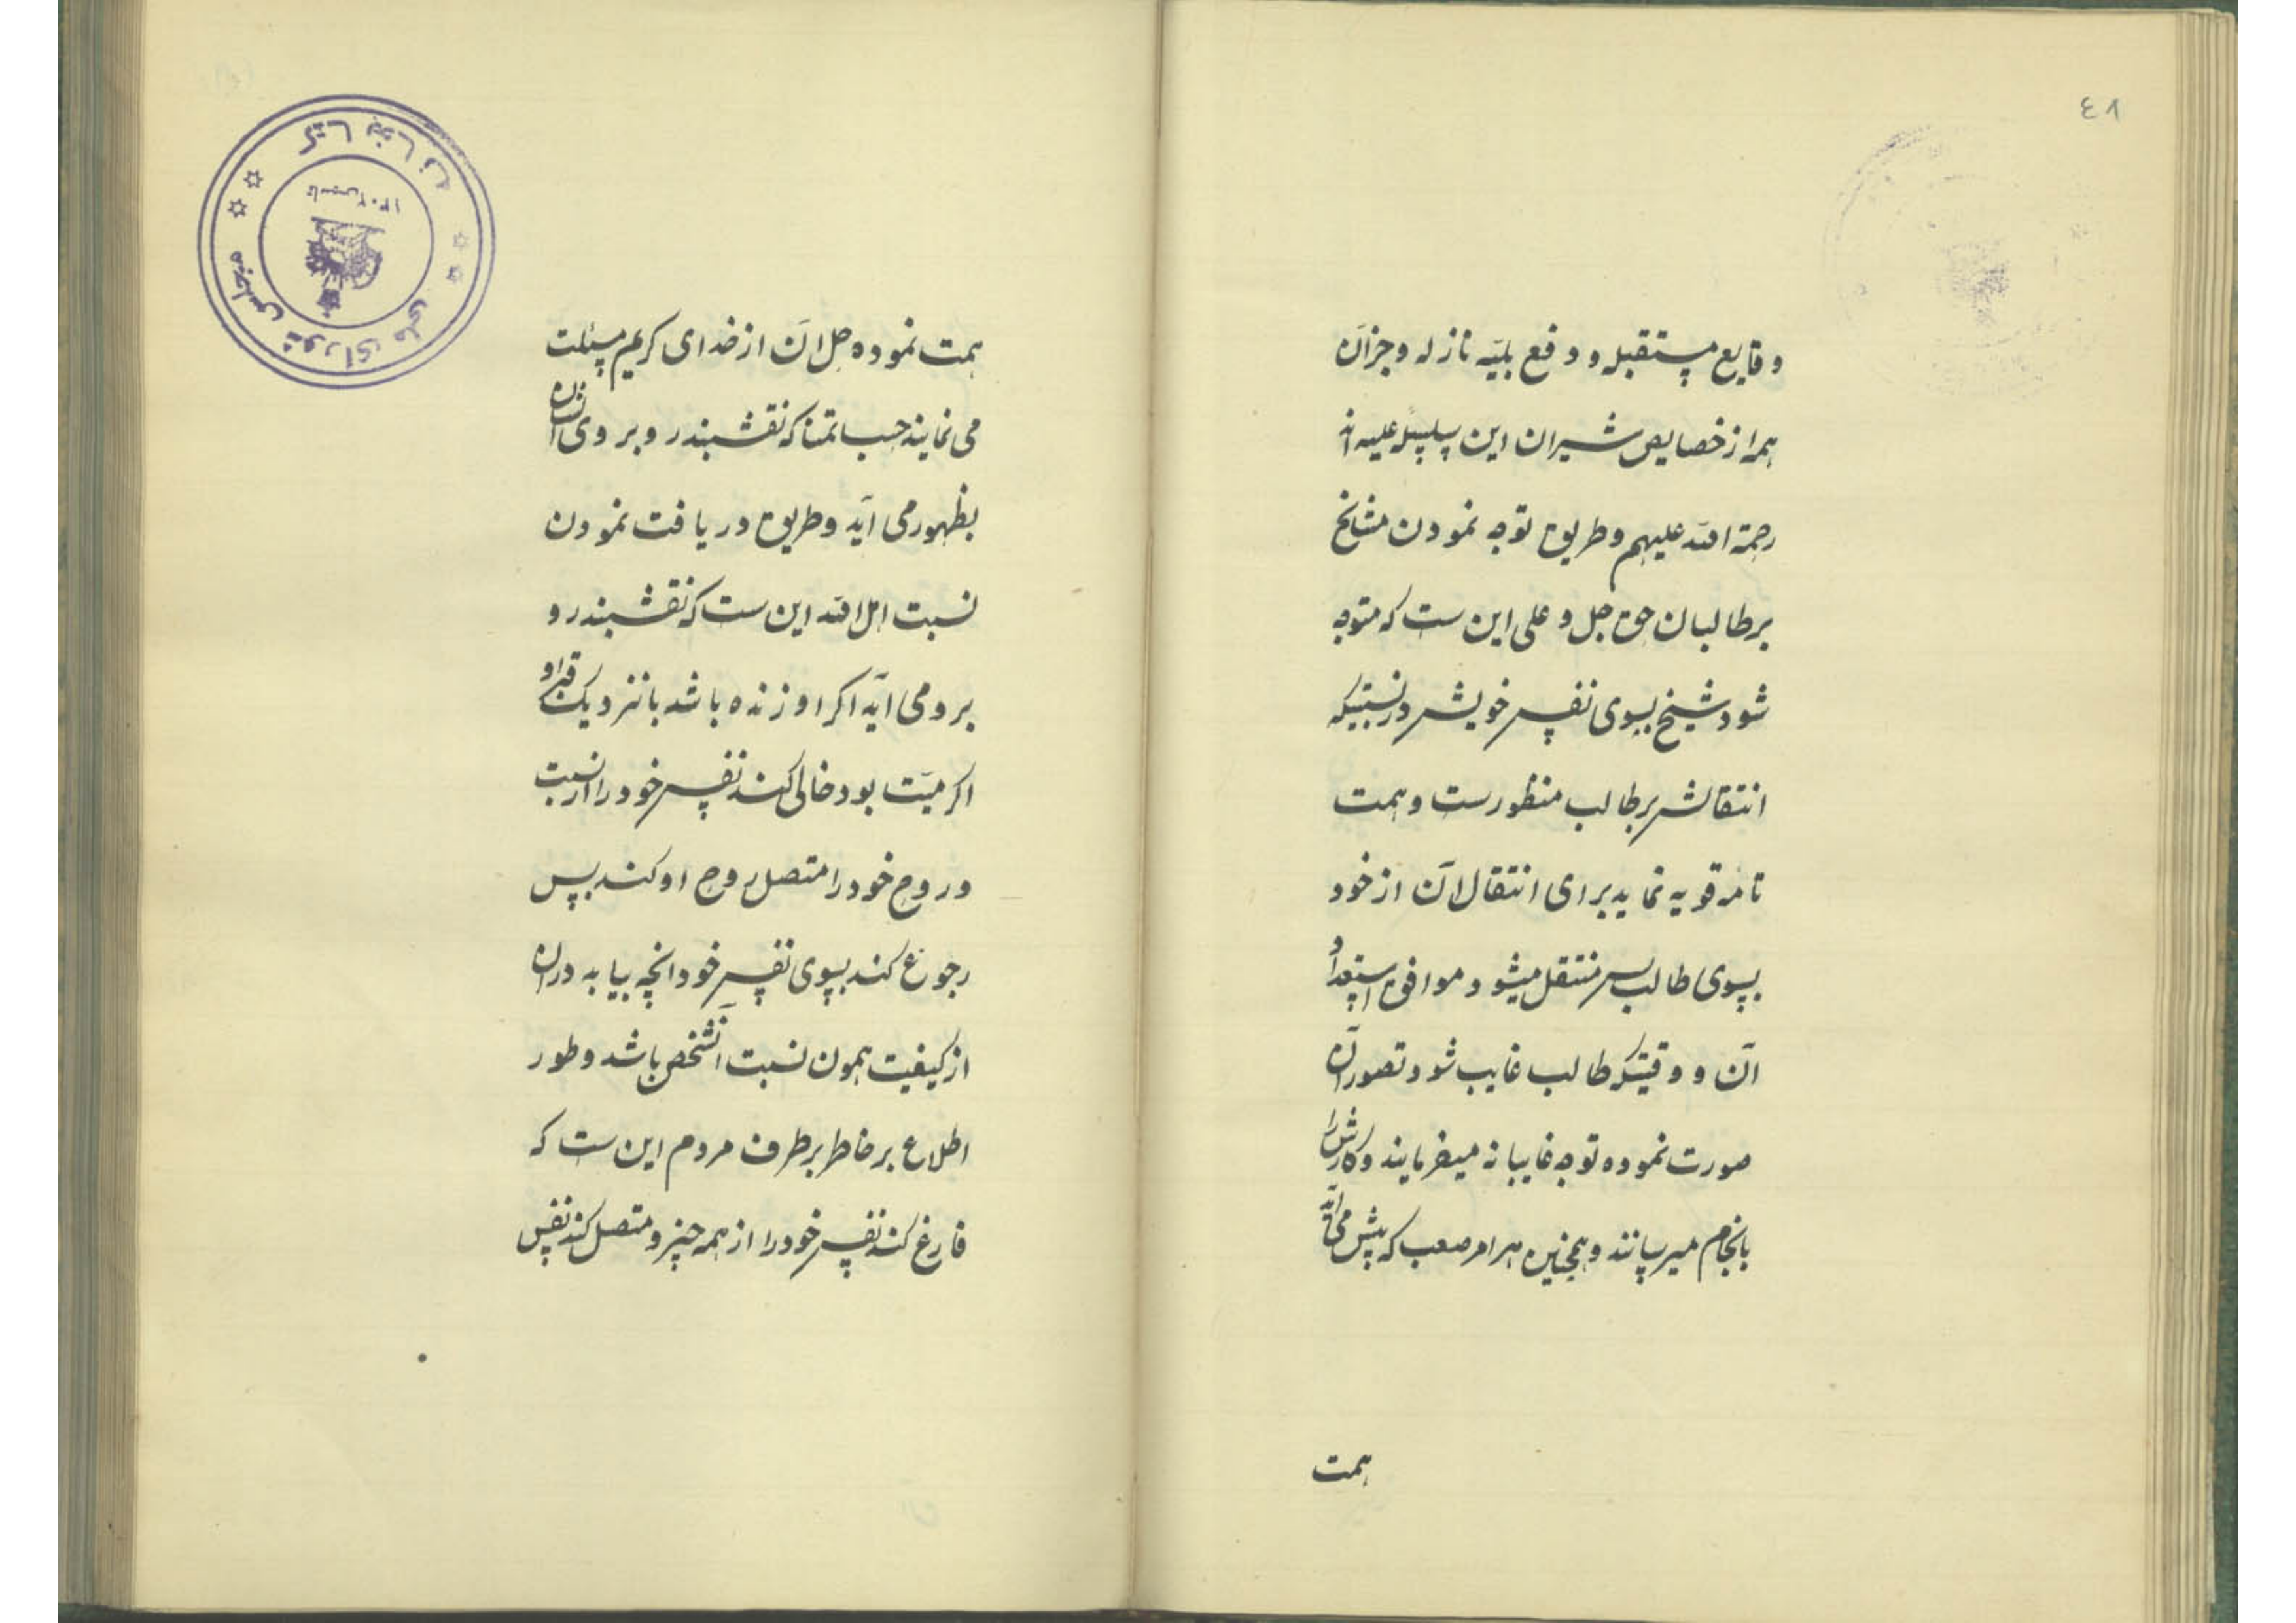 ٤٨
وقایع مستقبله و دفع بلیّه نازله و جزآن
همه از خصایص شیران این سلسله علیه اند
رحمة الله علیهم و طریق توجه نمودن مشایخ
بر طالبان حق جل و علی این ست که متوجه
شود شیخ بسوی نفس خویش در نسبتیکه
انتقالش بر طالب منظورست و همت
تامه قویه نماید برای انتقال آن از خود
بسوی طالب پس منتقل میشود موافق استعداد
آن و وقتیکه طالب غایب شود تصور آن
صورت نموده توجه غایبانه میفرمایند و کارش را
بانجام میرسانند و همچنین هر امر صعب که پیش می آید
همت
همت نموده حل آن از خدای کریم مسئلت
می نمایند حسب تمنا که نقشبندر وبروی آن
بظهور می آید و طریق دریافت نمودن
نسبت اهل الله این ست که نقشبندرو
برومی آید اگر او زنده باشد یا نزدیک قبر او
اگر میّت بود خالی کند نفس خود را از نسبت
و روح خود را متصل روح او کند پس
رجوع کند بسوی نفس خود انچه بیابد در آن
از کیفیت همون نسبت آنشخص باشد و طور
اطلاع بر خاطر برطرف مردم این ست که
فارغ کند نفس خود را از همه چیز و متصل کند نفس
کتابخانه
مجلس شورای ملی
تاسیس ۱۳۰۲